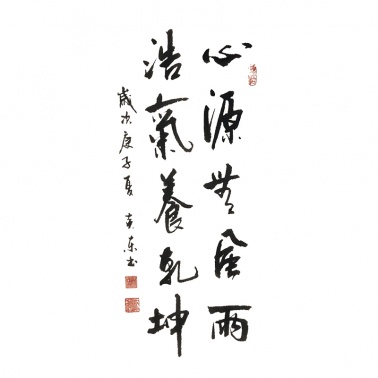 心源無風雨
浩氣養乾坤
歲次庚子夏
東書